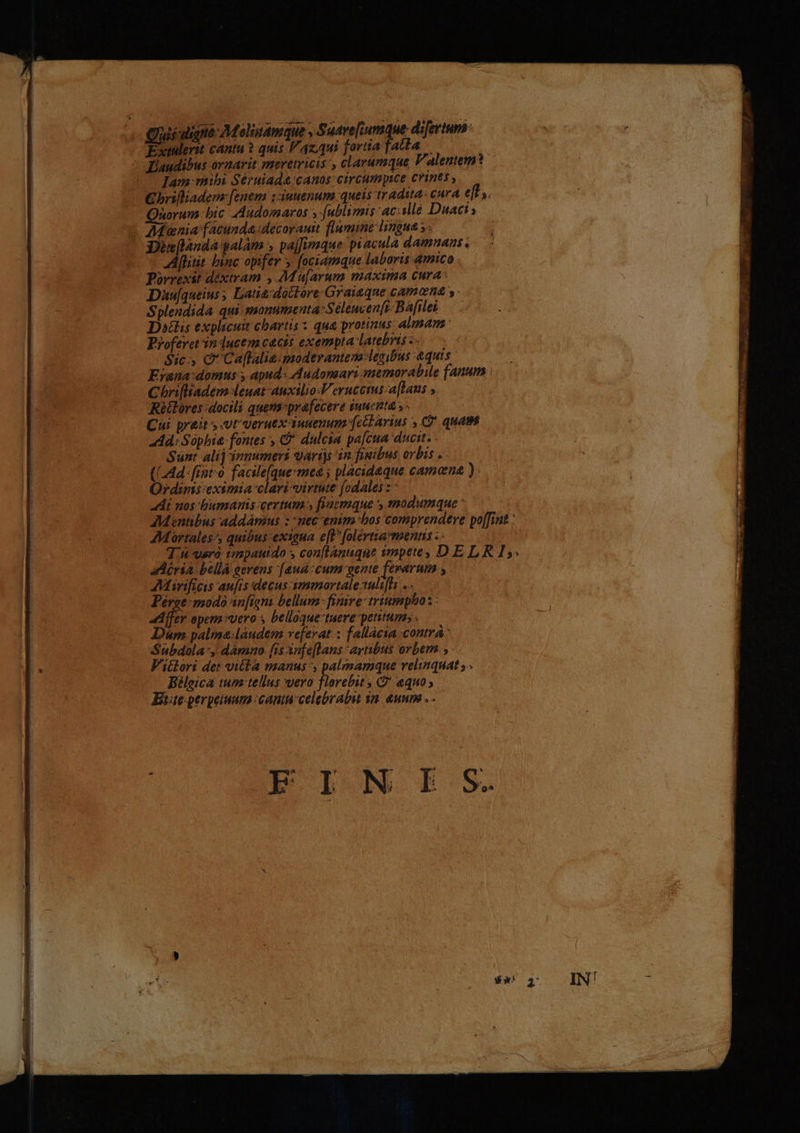 Quis dignè Molinamque, Suaresiumque disertum
Extulerit cantu? quis Vazqui fortia facta
Laudibus ornarit meretricis, clarumque Valentem?
Iam mihi Seruiadæ canos circumpice crines,
Christiadem senem: iuuenum queis tradita cura est,
Quorum hic Audomaros, sublimis ac ille Duaci,
Mœnia facunda decorauit flumine linguæ,
Diuestanda palàm, passimque piacula damnans.
Astitit hinc opifer, sociamque laboris amico
Porrexit dextram, Musarum maxima cura
Dausqueius, Latiæ doctore Graiæque camœnæ,
Splendida qui monumenta Seleucensis Basilei
Doctis explicuit chartis: quæ protinus almam
Proferet in lucem cæcis exempta latebris.
Sic, & Castaliæ moderantem legibus æquis
Erana domus, apud Audomari memorabile fanum
Christiadem leuat auxilio Veruccius astans,
Rectores docili quem præfecere iuuentæ,
Cui præit, vt veruex iuuenum sectarius, & quam
Ad Sophiæ fontes, & dulcia pascua ducit.
Sunt alij innumeri varijs in finibus orbis.
(Ad sint ô facilesque meæ; placidæque camœnæ)
Ordinis eximia clari virtute sodales:
At nos humanis certum, finemque, modumque
Mentibus addamus: nec enim hos comprendere possint
Mortales, quibus exigua est solertia mentis.
Tu verò impauido, constantique impete, DELRI,
Acria bella gerens sæua cum gente ferarum,
Mirificis ausis decus immortale tulisti.
Perge modò insigni bellum finire triumpho:
Affer opem vero, belloque tuere petitum,
Dum palmæ laudem referat: fallacia contrà
Subdola, damno sis infestans artibus orbem,
Victori det victa manus, palmamque relinquat,
Belgica tum tellus vero florebit, & æquo,
Et te perpetuum cantu celebrabit in æuum.
FINIS.
2 IN